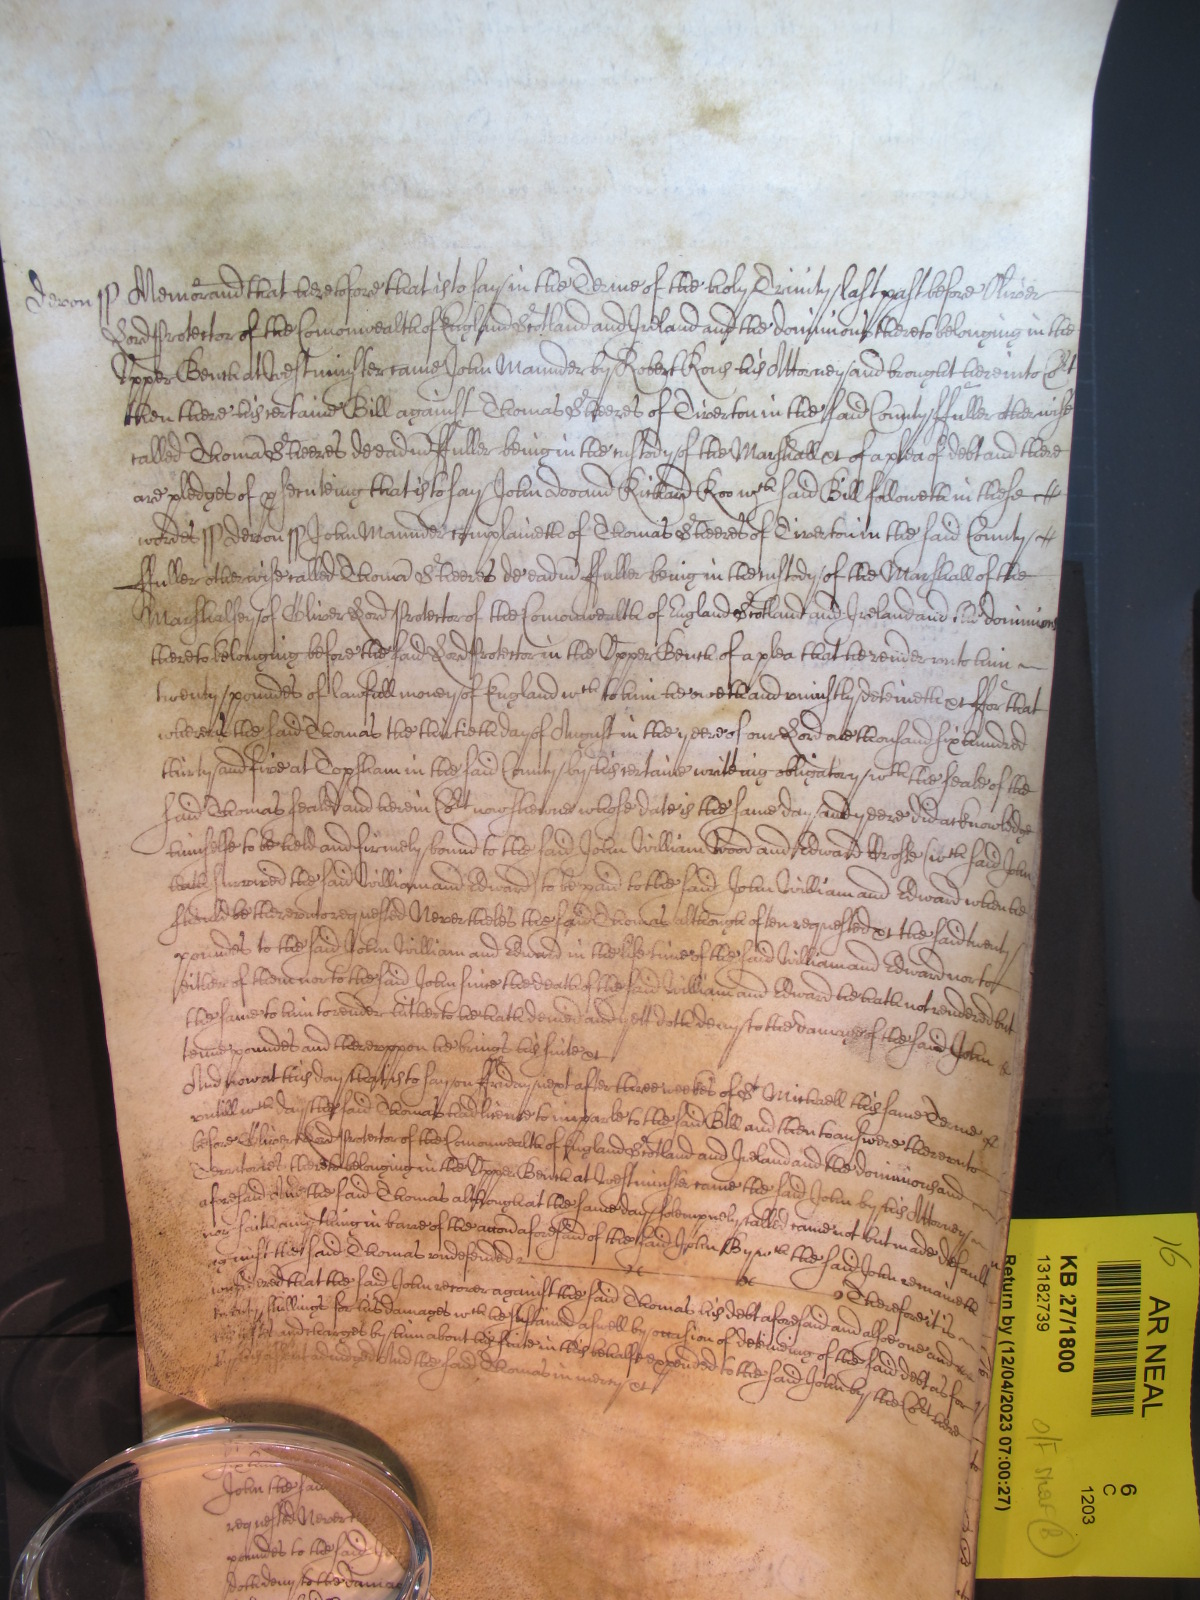 Devon ss Memorand that heretofore that is to say in the Terme of the holy Trinity last past before Oliver
Lord Protector of the Comonwealth of England Scotland and Ireland and the dominions thereto belonging in the
Upper Bench at Westminster came John Maunder by Robert Kous his Attorney and brought here into Cort
then there his certaine Bill against Thomas Steeres of Tiverton in the said County ffuller otherwise
called Thomas Steeres de ead ffuller being in the custody of the Marshall &t of a plea of debt and there
are pledges of psecuteing that is to say John doo and Richard Roo wch said Bill followeth in these
wordes ss Devon ss John Maunder complaineth of Thomas Steeres of Tiverton in the said County
ffuller otherwise called Thomas Steeres de ead ffuller being in the custody of the Marshall of the
Marshalsey of Oliver Lord Protector of the Comonwealth of England Scotland and Ireland and the dominions
thereto belonging before the said Lord Protector in the Upper Bench of a plea that he render unto him
twenty poundes of lawfull money of England wch to him he oweth and uniustly deteineth &t ffor that
whereas the said Thomas the thirtieth day of August in the yeere of our Lord one thousand six hundred
thirty and five at Topsham in the said County by his certaine writeing obligatory wth the seale of the
said Thomas sealed and herein Cort now shewne whose date is the same day and yeere did acknowledge
himselfe to be held and firmely bound to the said John William Wood and Edward Crosse wch said John
hath survived the said William and Edward to be paid to the said John William and Edward when he
should be thereunto requessted Neverthelesse the said Thomas although often requessted &t the said twenty
poundes to the said John William and Edward in the life time of the said William and Edward nor to
either of them nor to the said John since the death of the said William and Edward he hath not rendered but
the same to him to render hitherto he hath denied and yett doth deny to the damage of the said John
tenne poundes and thereuppon he brings his suite &t
And now at this day that is to say on ffriday next after three weekes of St Michaell this same Terme
untill wch day the said Thomas had licence to imparle to the said Bill and then to answere thereunto
before Oliver Lord Protector of the Comonwealth of England Scotland and Ireland and the dominions and
Territories thereto belonging in the Upper Bench at Westminster came the said John by his Attorney
aforesaid And the said Thomas although at the same day solempnely called came not but made default
nor saith any thing in barre of the accon aforesaid of the said John By wch the said John remaineth
against the said Thomas undefended Therefore it is
considered that the said John recover against the said Thomas his debt aforesaid and alsoe one and
twenty shillings for his damages wch he susteined aswell by occasion of deteineing of the said debt as for
and charges by him about his suite in this behalfe expended to the said John by the Cort here
adiudged And the said Thomas in mercy &t
John the said
requessted Nevert
poundes to the said Jo
doth deny to the damag
16
AR NEAL
KB 27/1800
13182739
Return by (12/04/2023 07:00:27)
6
C
1203